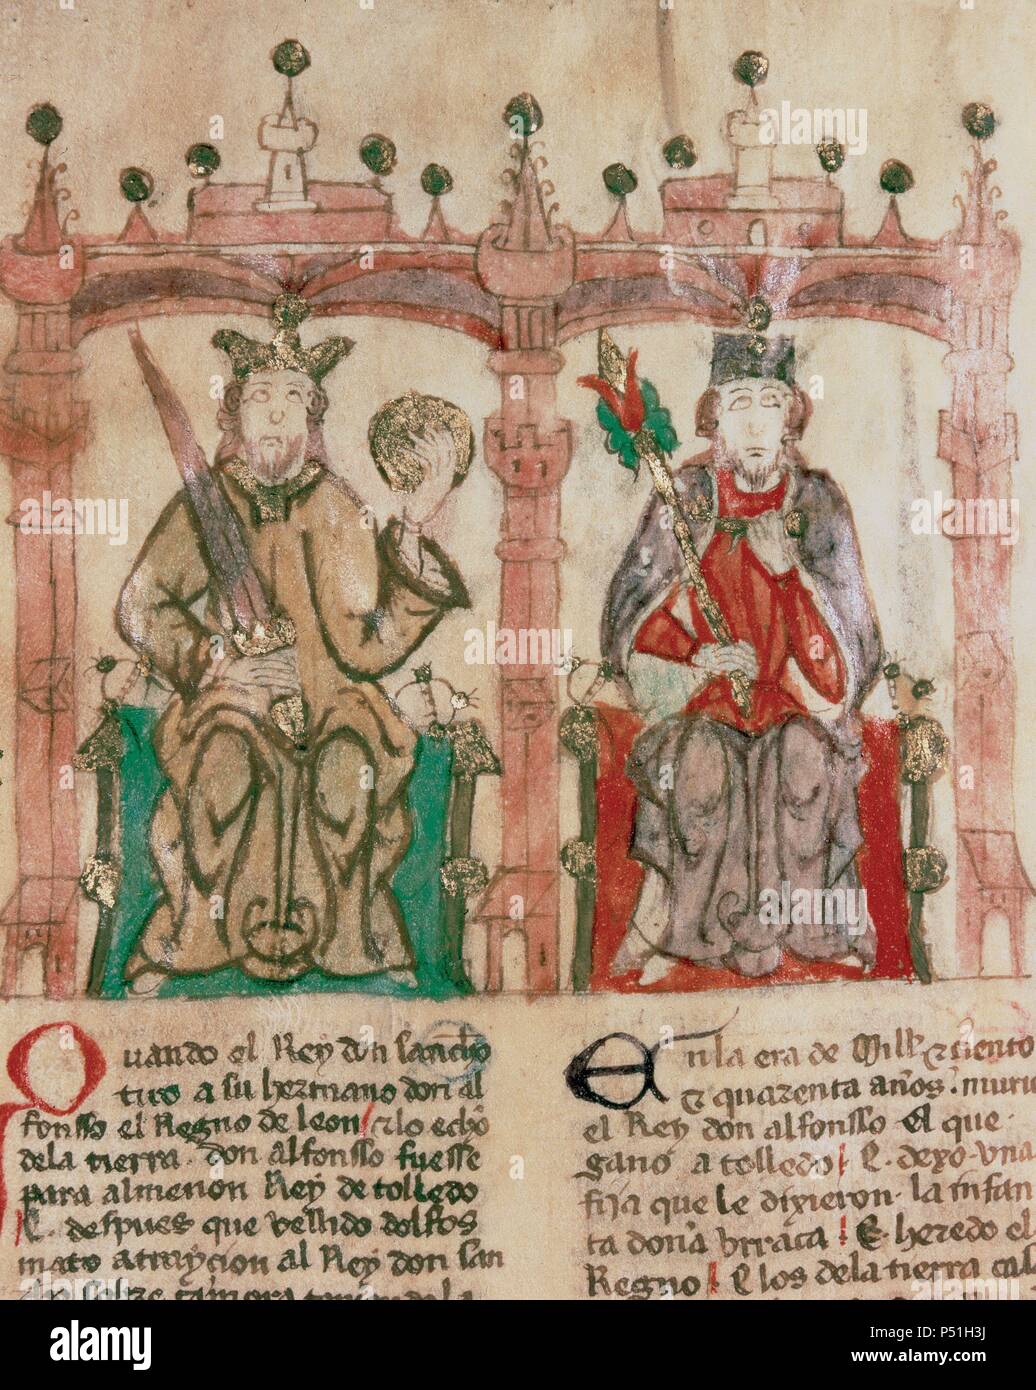 Quando el Rey don sancho
tiro a su hermano don al
fonsso el Regno de leon / & lo echo
dela tierra. don alfonsso fuesse
para almenon Rey de tolledo
E. despues que vellido dolfos
mato atrayçion al Rey don san
sobre çamora
En la era de Mill & çiento
& quarenta años. murio
el Rey don alfonsso el que.
gano a tolledo / E. dexo. vna
fija que le dixieron. la infan
ta doña vrraca / E. heredo el
Regno / E los dela tierra
alamy
alamy stock photo
Image ID: P51H3J
www.alamy.com